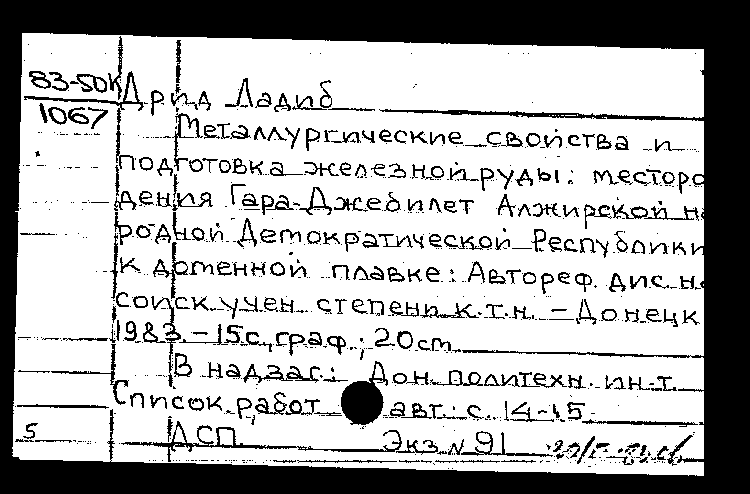 83-50К Дрид Ладиб
1067
Металлургические свойства и
подготовка железной руды: месторо
дения Гара-Джебилет Алжирской на
родной Демократической Республики
к доменной плавке: Автореф. дис. на
соиск. учен. степени к.т.н. - Донецк
1983. - 15с, граф.; 20см
В надзаг.: Дон. политехн. ин-т.
Список работ авт.: с. 14-15.
5 ДСП. Экз N 91